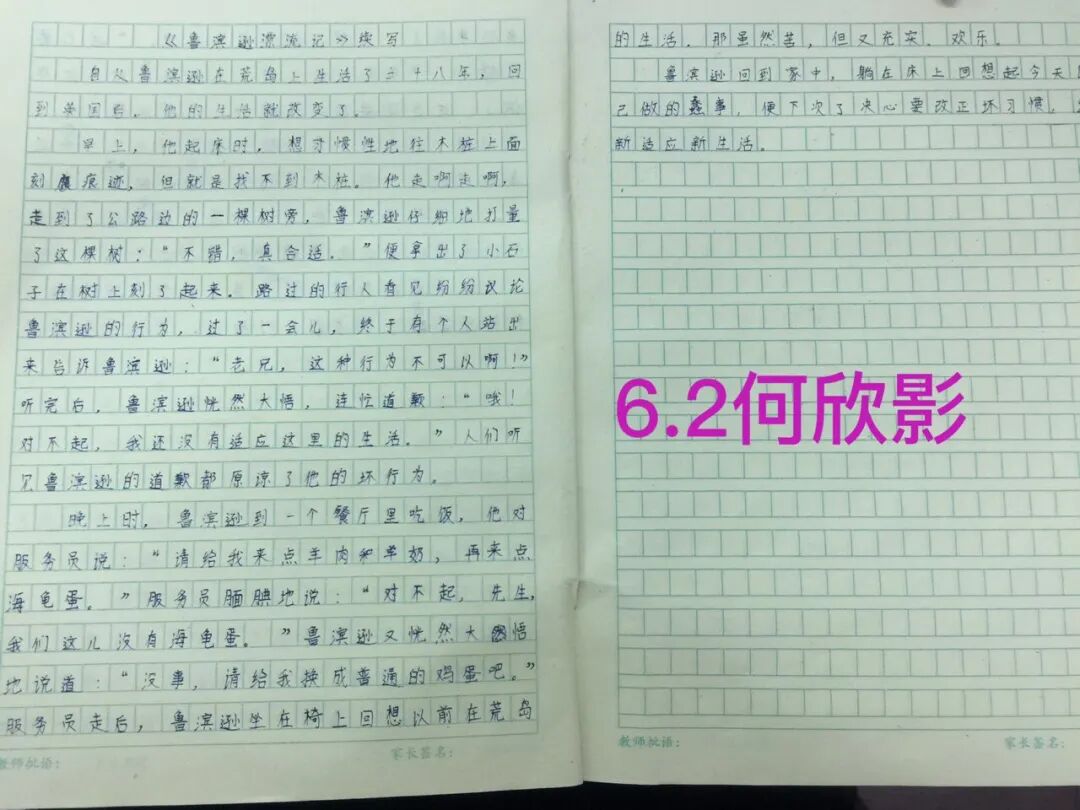 《鲁滨逊漂流记》续写
自从鲁滨逊在荒岛上生活了二十八年，回
到英国后，他的生活就改变了。
早上，他起床时，想习惯性地往木桩上面
刻痕迹，但就是找不到木桩。他走啊走啊，
走到了公路边的一棵树旁，鲁滨逊仔细地打量
了这棵树：“不错，真合适。”便拿出了小石
子在树上刻了起来。路过的行人看见纷纷议论
鲁滨逊的行为，过了一会儿，终于有个人站出
来告诉鲁滨逊：“老兄，这种行为不可以啊！”
听完后，鲁滨逊恍然大悟，连忙道歉：“哦！
对不起，我还没有适应这里的生活。”人们听
见鲁滨逊的道歉都原谅了他的坏行为。
晚上时，鲁滨逊到一个餐厅里吃饭，他对
服务员说：“请给我来点羊肉和羊奶，再来点
海龟蛋。”服务员腼腆地说：“对不起，先生，
我们这儿没有海龟蛋。”鲁滨逊又恍然大悟
地说道：“没事，请给我换成普通的鸡蛋吧。”
服务员走后，鲁滨逊坐在椅上回想以前在荒岛
教师批语：
家长签名：
的生活，那虽然苦，但又充实、欢乐。
鲁滨逊回到家中，躺在床上回想起今天
己做的蠢事，便下次了决心要改正坏习惯，
新适应新生活。
6.2何欣影
教师批语：
家长签名：